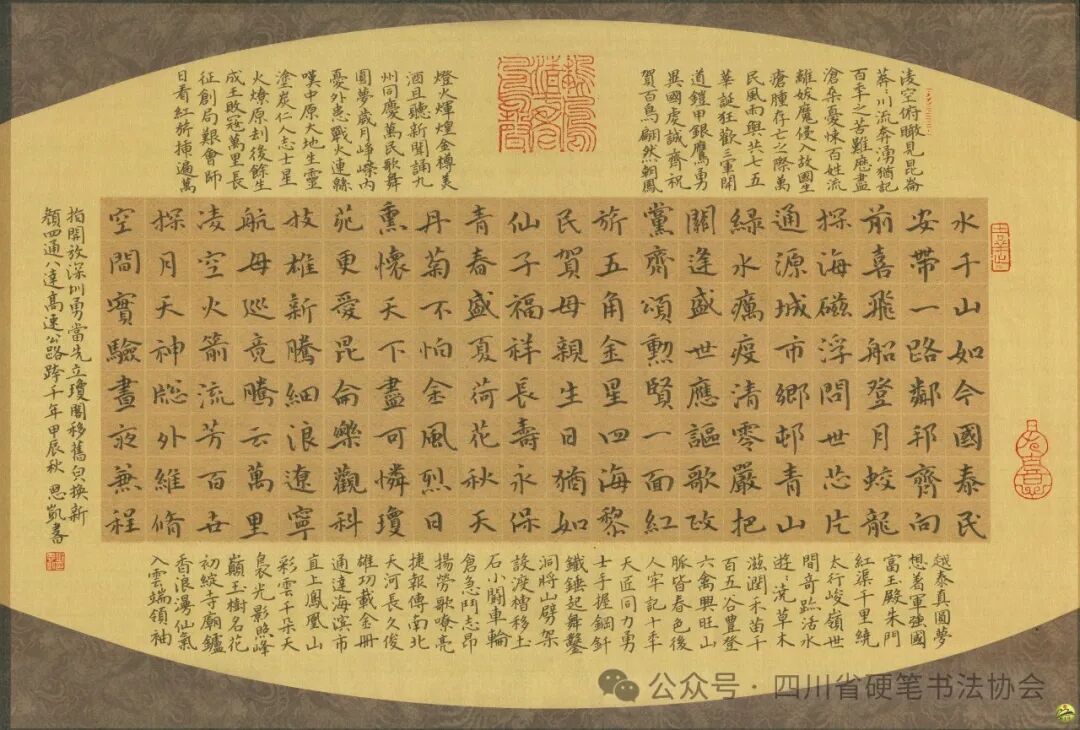 凌空俯瞰見昆崙
莽〻川流奔湧猶記
百年之苦難應盡
滄桑憂悚百姓流
離妖魔侵入故國生
瘡腫存亡之際萬
民風雨興共七五
華誕狂歡三軍開
道鎧甲銀鷹勇
異國虔誠齊祝
賀百鳥翩然朝鳳
燈火輝煌金樽美
酒且聽新聞誦九
州同慶萬民歌舞
圓夢歲月崢嶸內
憂外患戰火連緜
嘆中原大地生靈
塗炭仁人志士星
火燎原刦後餘生
成王敗冦萬里長
征創局艱會師
日看紅旂揀遍萬
水千山如今國泰民
安帶一路鄰邦齊向
前喜飛船登月蛟龍
探海磁浮問世芯片
通源城市鄉邨青山
綠水癘疫清零嚴把
關逢盛世應謳歌政
黨齊頌勳賢一面紅
旂五角金星四海黎
民賀母親生日猶如
仙子福祥長壽永保
青春盛夏荷花秋天
丹菊不怕金風烈日
熏懷天下盡可憐瓊
苑更愛昆侖樂觀科
技雄新騰細浪遼寧
航母巡竟騰云萬里
凌空火箭流芳百世
探月天神外維脩
空間實驗晝夜兼程
越泰真圓夢
想着軍強國
富玉殿朱門
紅渠千里繞
太行峻嶺世
間奇跡活水
遊〻流草木
滋潤禾苗千
百五谷豐登
六禽興旺山
脈皆春色後
人牢記十年
天匠同力勇
士手握鋼釺
鐵錘起舞鑿
洞將山劈架
設渡槽移玉
石小闢車輪
倉急鬥志昂
揚勞歌嘹亮
捷報傳南北
天河長久俊
雄功載金冊
通達海濱市
直上鳳凰山
彩雲千朵天
裊光影照峰
巔玉樹名花
初綻寺廟鑪
香浪漫仙氣
入雲端領袖
指開放深圳勇當先立瓊閣移舊皃換新
顏四通八達高速公路跨千年甲辰秋 思凱書
公众号·四川省硬笔书法协会